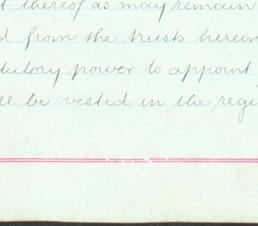 thereof as may remain
from the trusts herein
power to appoint
be vested in the